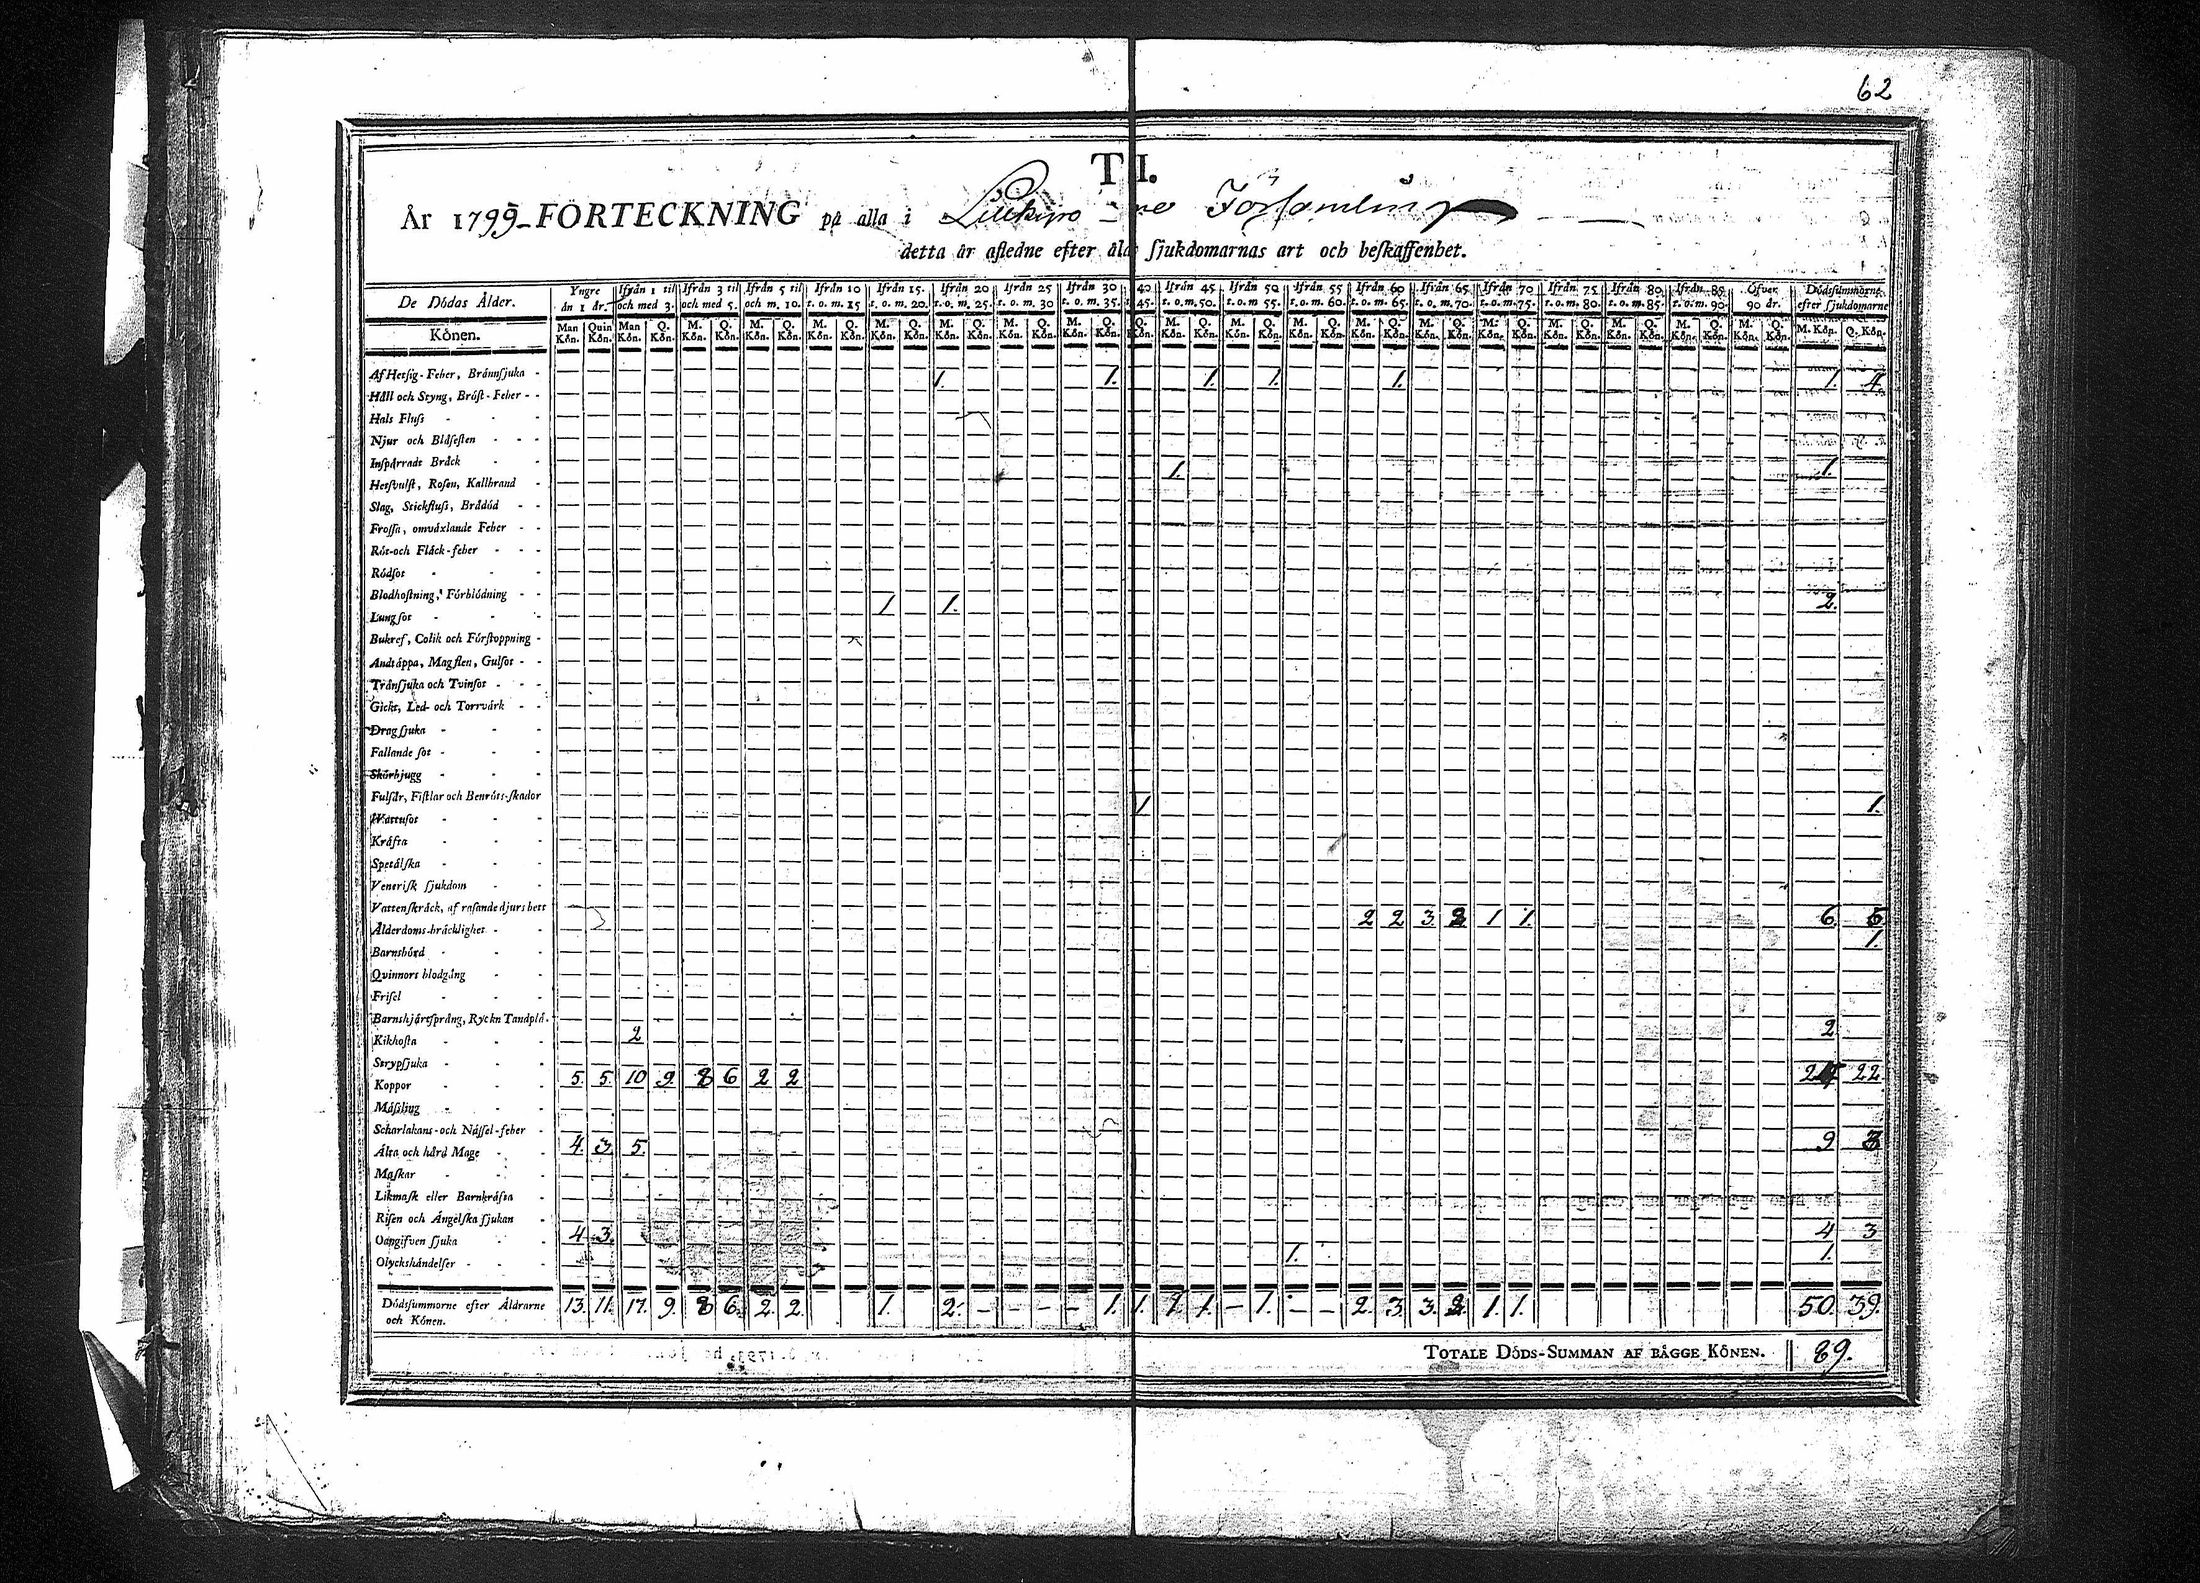 62
T I.
År 1799 FÖRTECKNING på alla i Församling
detta år afledne efter åld sjukdomarnas art och beskaffenhet.
De Dödas Ålder. Yngre än 1 år. Ifrån 1 til och med 3. Ifrån 3 til och med 5. Ifrån 5 til och m. 10. Ifrån 10 t. o. m. 15 Ifrån 15. t. o. m. 20. Ifrån 20 t. o. m. 25. Ifrån 25 t. o. m. 30 Ifrån 30 t. o. m. 35. 40 45. Ifrån 45 t. o. m. 50. Ifrån 50 t. o. m. 55. Ifrån 55 t. o. m. 60. Ifrån 60 t. o. m. 65. Ifrån 65 t. o. m. 70. Ifrån 70 t. o. m. 75. Ifrån 75 t. o. m. 80. Ifrån 80 t. o. m. 85. Ifrån 85 t. o. m. 90. Öfver 90 år. Dödssummorne efter sjukdomarne
Könen. Man Kön. Quin Kön. Man Kön. Q. Kön. M. Kön. Q. Kön. M. Kön. Q. Kön. M. Kön. Q. Kön. M. Kön. Q. Kön. M. Kön. Q. Kön. M. Kön. Q. Kön. M. Kön. Q. Kön. Q. Kön. M. Kön. Q. Kön. M. Kön. Q. Kön. M. Kön. Q. Kön. M. Kön. Q. Kön. M. Kön. Q. Kön. M. Kön. Q. Kön. M. Kön. Q. Kön. M. Kön. Q. Kön. M. Kön. Q. Kön. M. Kön. Q. Kön. M. Kön. Q. Kön.
Af Hetsig-Feber, Brännsjuka - 1. 1. 1. 1. 1. 1. 4.
Håll och Styng, Bröst-Feber - -
Hals Fluss
Njur och Blåssten
Inspärradt Bråck 1. 1.
Hetsvulst, Rosen, Kallbrand
Slag, Stickfluss, Brådöd
Frossa, omväxlande Feber
Röt-och Fläck-feber
Rödsot
Blodhostning, Förblödning
Lungsot 1 1. 2.
Bukref, Colik och Förstoppning
Andtäppa, Magsten, Gulsot
Trånsjuka och Tvinsot
Gickt, Led- och Torrvärk
Dragsjuka
Fallande sot
Skörbjugg
Fulsår, Fistlar och Benröts-skador 1 1.
Wattusot
Kräfta
Spetälska
Venerisk sjukdom
Vattenskräck, af rasande djurs bett
Ålderdoms-bräcklighet 2 2 3. 2 1 1. 6. 5
Barnsbörd 1.
Qvinnors blodgång
Frisel
Barnshjertsprång, Ryck n Tandplå.
Kikhosta 2 2.
Strypsjuka
Koppor 5. 5. 10 9. 8 6 2 2 22.
Mässling
Scharlakans-och Nässel-feber
Älta och hård Mage 4. 3 5. 9 3
Maskar
Likmask eller Barnkräfta
Risen och Ängelska sjukan
Oangifven sjuka 4 3. 4 3
Olyckshändelser 1. 1.
Dödssummorne efter Åldrarne och Könen. 13. 11. 17. 9. 8 6. 2. 2. 1. 2. - - - - 1. 1. 1. 1. - 1. - - 2. 3. 3. 2. 1. 1. 50. 39.
TOTALE DÖDS-SUMMAN AF BÅGGE KÖNEN. 89.